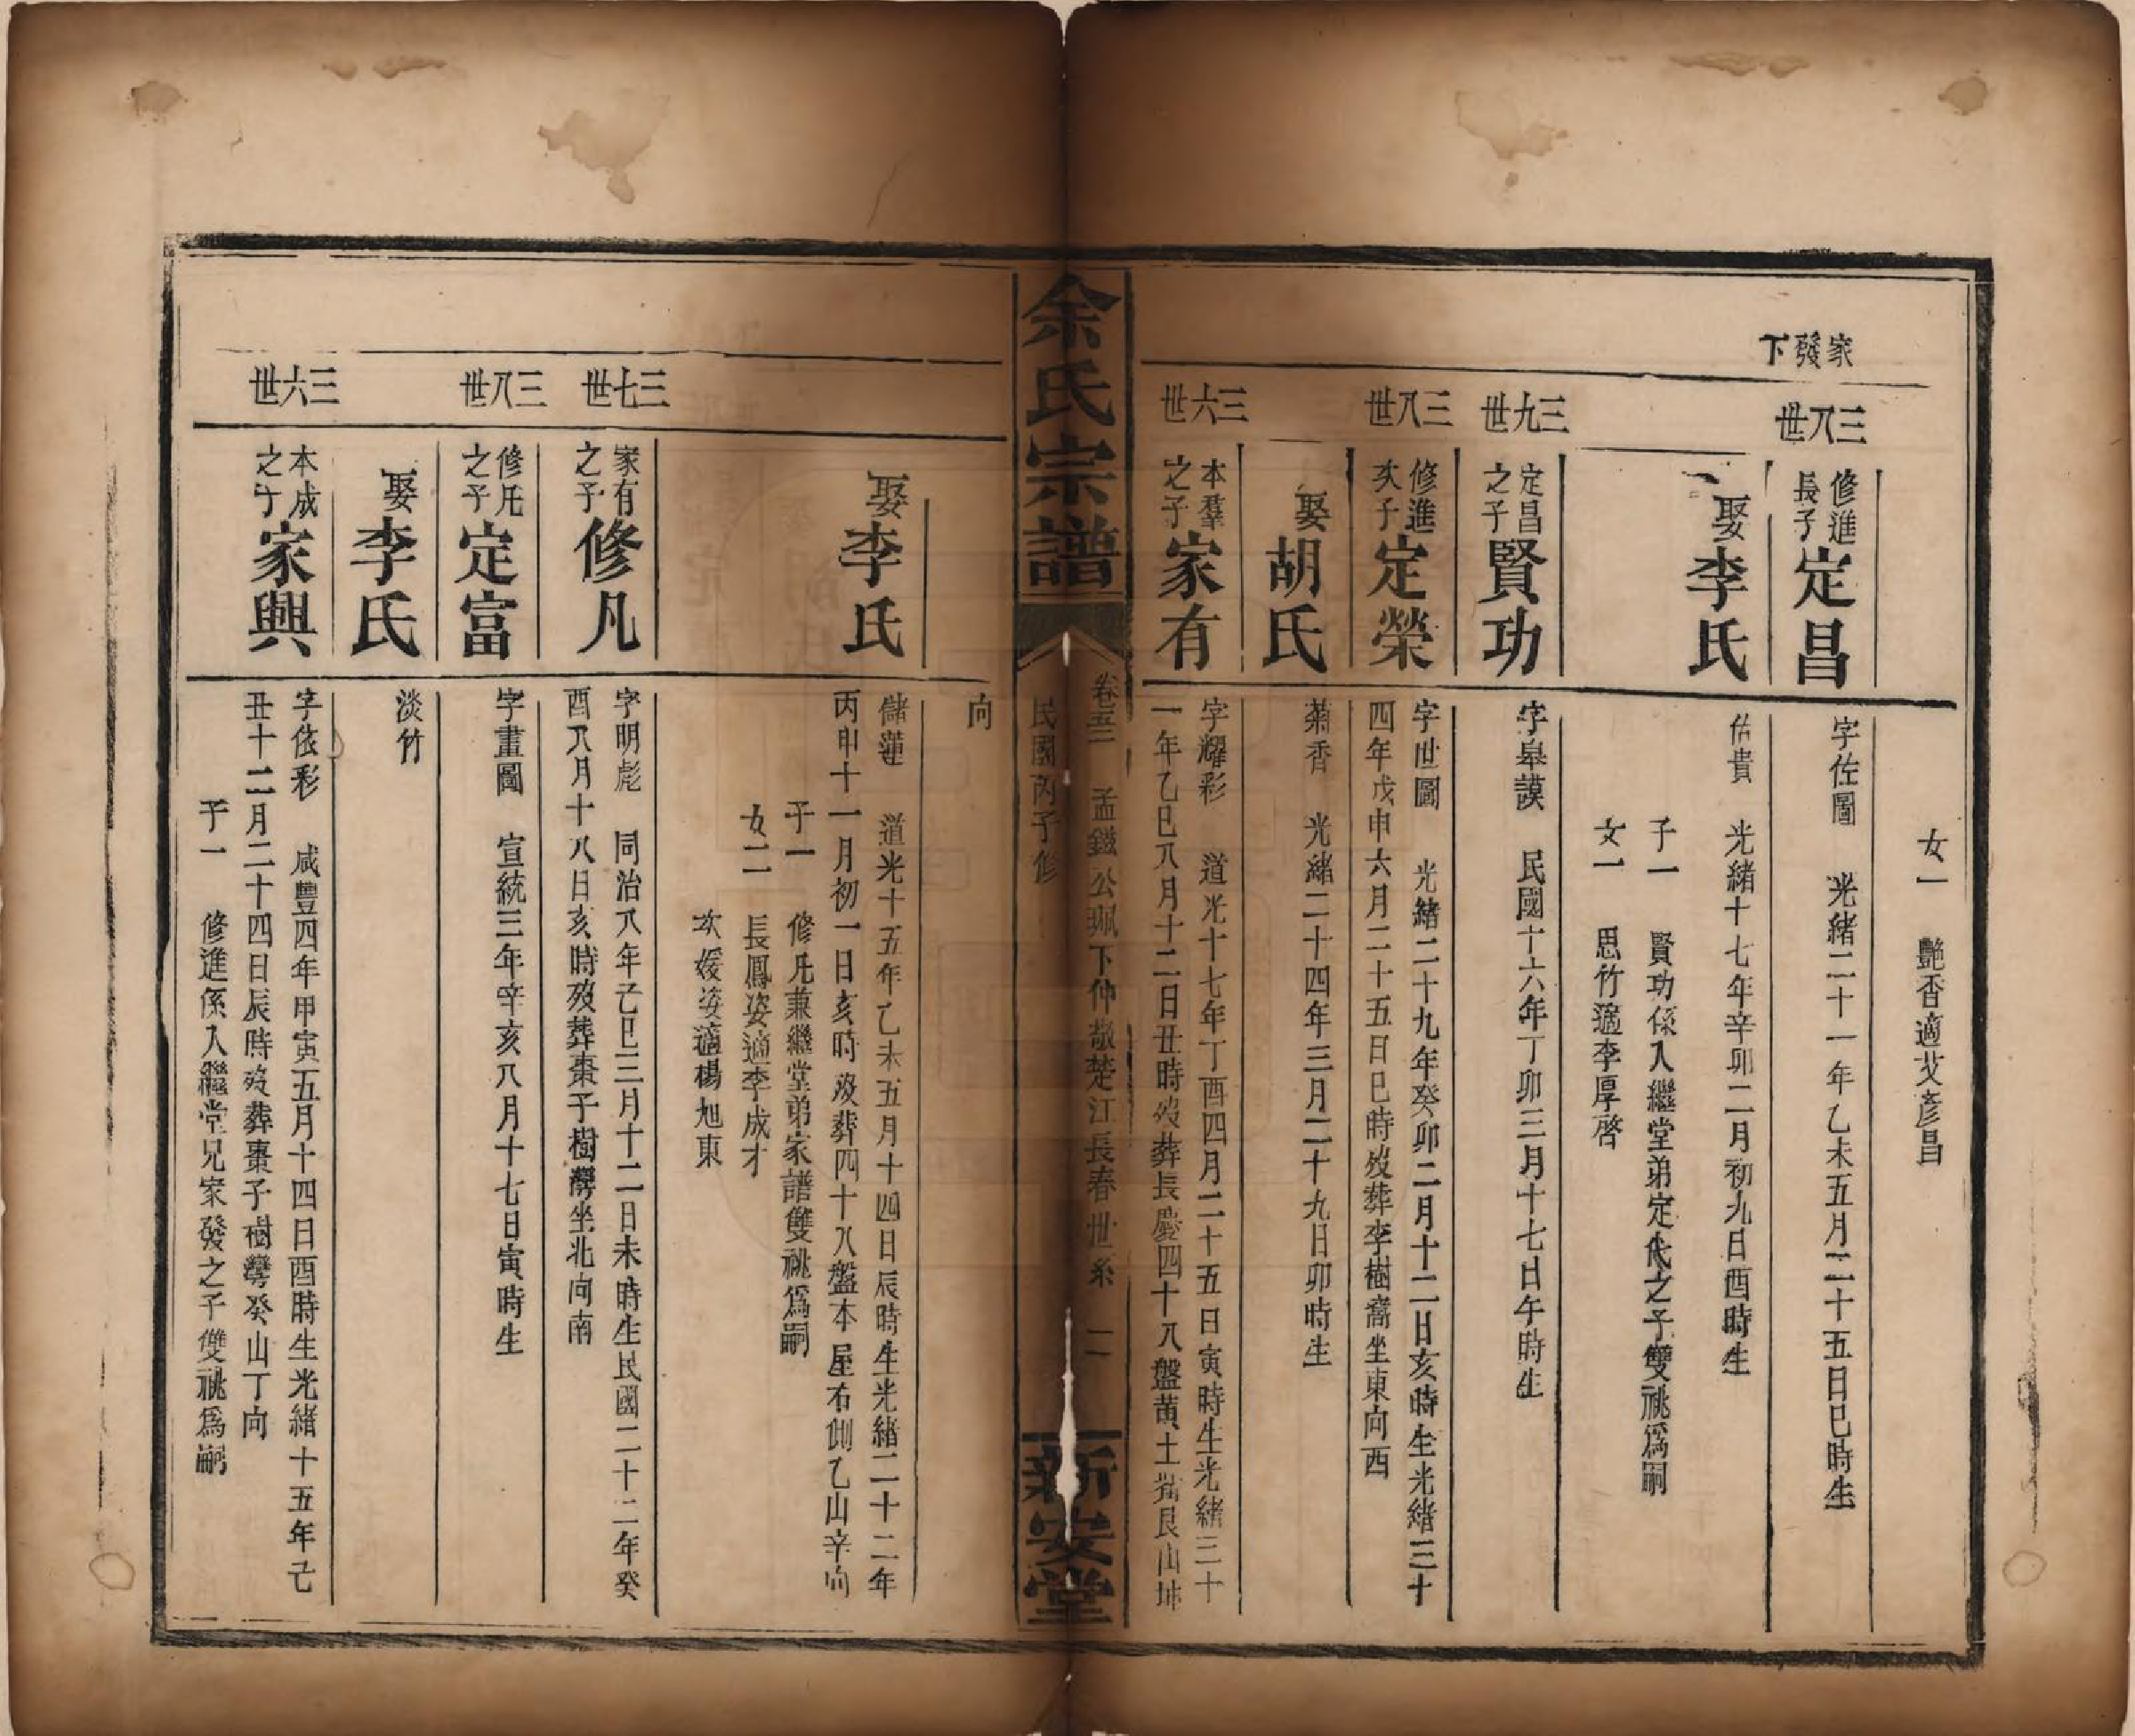 女一　艷香適艾彥昌
家發下
三八世
修進長子定昌
字佐圖　光緒二十一年乙未五月二十五日巳時生
娶李氏
佑貴　光緒十七年辛卯二月初九日酉時生
子一　賢功係入繼堂弟定代之子雙祧爲嗣
女一　思竹適李厚啓
三九世
定昌之子賢功
字皋謨　民國十六年丁卯三月十七日午時生
三八世
修進次子定榮
字世圖　光緒二十九年癸卯二月十二日亥時生光緒三十
四年戊申六月二十五日巳時歿葬李樹窩坐東向西
娶胡氏
菊香　光緒二十四年三月二十九日卯時生
三六世
本羣之子家有
字耀彩　道光十七年丁酉四月二十五日寅時生光緒三十
一年乙巳八月十二日丑時歿葬長慶四十八盤黃土嶺艮山坤
余氏宗譜
卷三　孟鎰公珮下仲敬楚江長春世系　二
民國丙子修
新安堂
向
娶李氏
儲蓮　道光十五年乙未五月十四日辰時生光緒二十二年
丙申十一月初一日亥時歿葬四十八盤本屋右側乙山辛向
子一　修凡兼繼堂弟家譜雙祧爲嗣
女二　長鳳姿適李成才
次媛姿適楊旭東
三七世
家有之子修凡
字明彪　同治八年己巳三月十二日未時生民國二十二年癸
酉八月十八日亥時歿葬棗子樹灣坐北向南
三八世
修凡之子定富
字畫圖　宣統三年辛亥八月十七日寅時生
娶李氏
淡竹
三六世
本成之子家興
字依彩　咸豐四年甲寅五月十四日酉時生光緒十五年己
丑十二月二十四日辰時歿葬棗子樹灣癸山丁向
子一　修進係入繼堂兄家發之子雙祧爲嗣